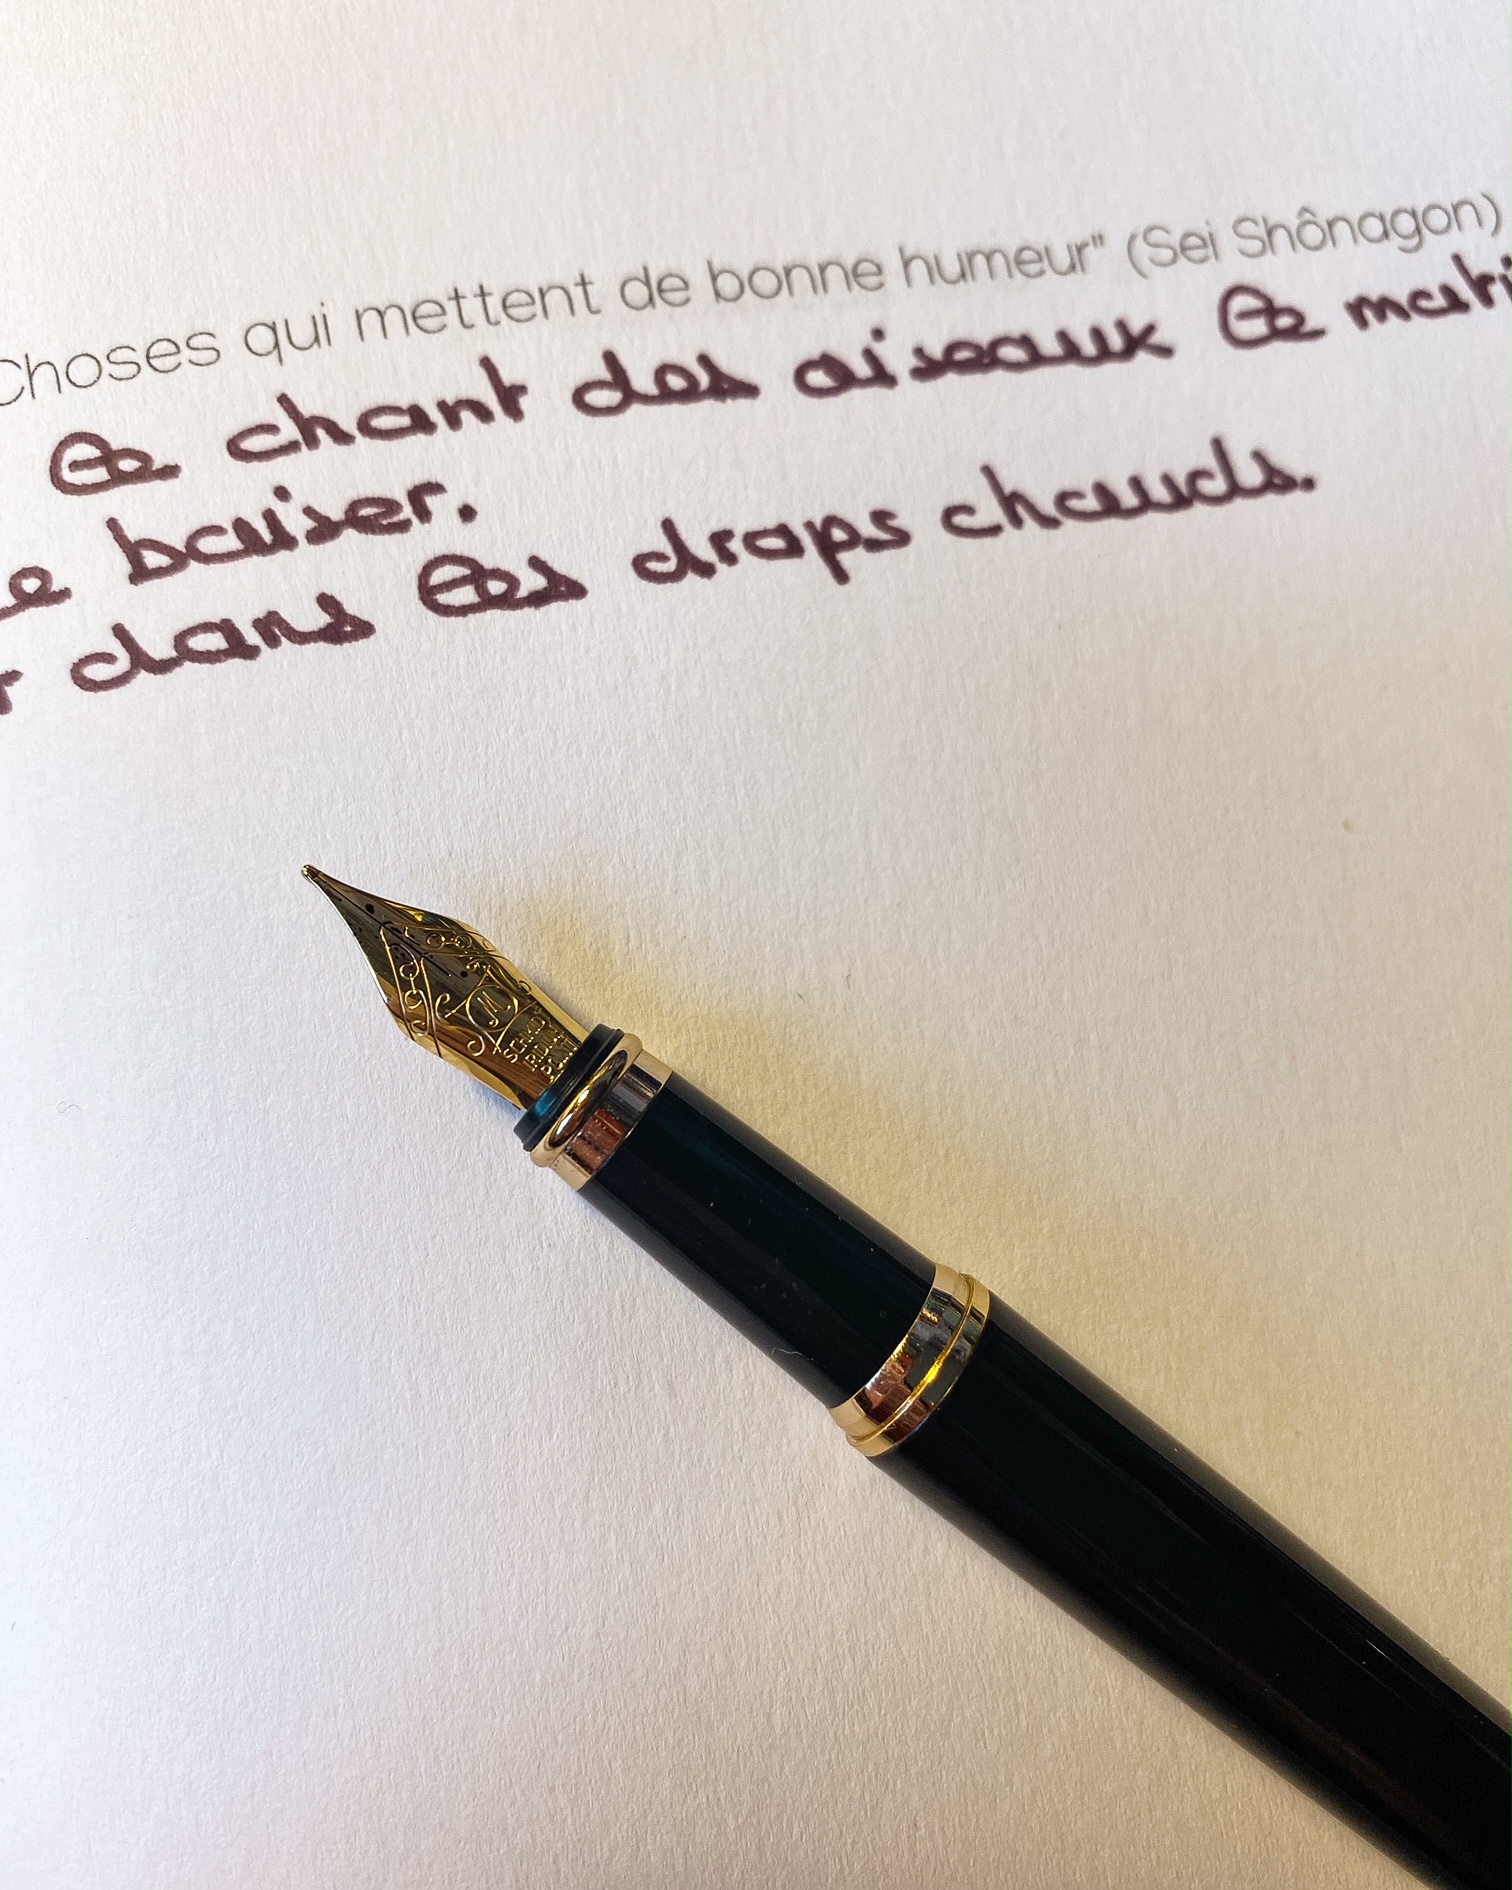 Choses qui mettent de bonne humeur" (Sei Shônagon)
le chant des oiseaux le mati
e baiser.
r dans les draps chauds.
M
SCHMIDT
IRIDIUM
POINT